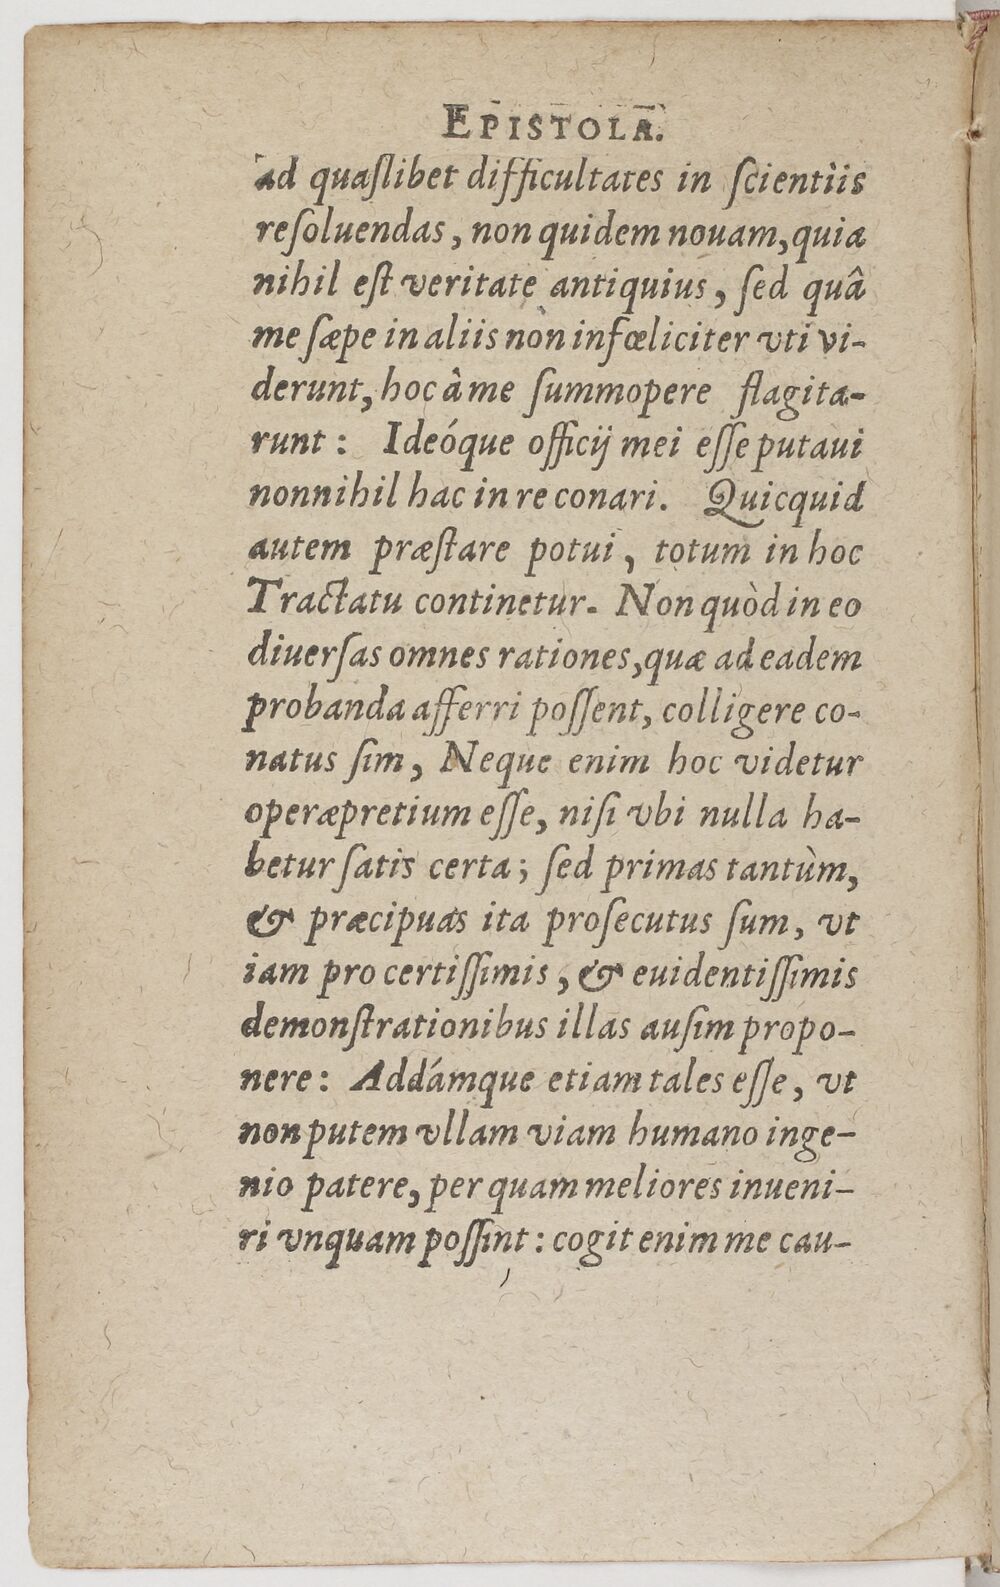 EPISTOLA.
ad quaſlibet difficultates in ſcientiis
reſoluendas, non quidem nouam, quia
nihil eſt veritate antiquius, ſed quâ
me ſæpe in aliis non infœliciter vti vi-
derunt, hoc â me ſummopere flagita-
runt: Ideóque officij mei eſſe putaui
nonnihil hac in re conari. Quicquid
autem præſtare potui, totum in hoc
Tractatu continetur. Non quòd in eo
diuerſas omnes rationes, quæ ad eadem
probanda afferri poſſent, colligere co-
natus ſim, Neque enim hoc videtur
operæpretium eſſe, niſi vbi nulla ha-
betur ſatis certa; ſed primas tantùm,
& præcipuas ita proſecutus ſum, vt
iam pro certiſſimis, & euidentiſſimis
demonſtrationibus illas auſim propo-
nere: Addámque etiam tales eſſe, vt
non putem vllam viam humano inge-
nio patere, per quam meliores inueni-
ri vnquam poſſint: cogit enim me cau-